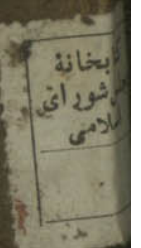 بخانهٔ
شورای
سلامی